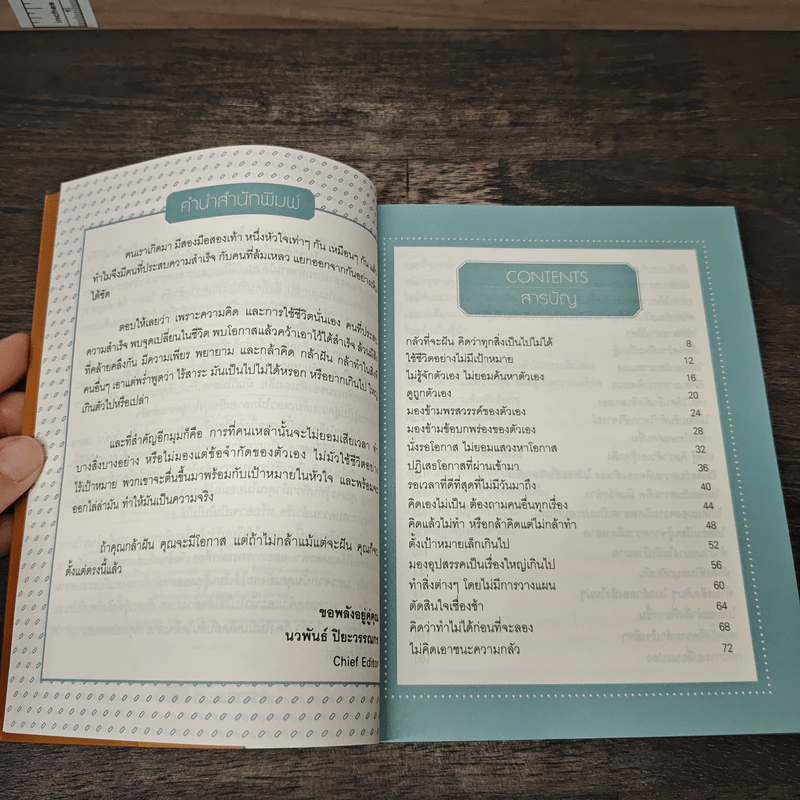 inches
1
คำนำสำนักพิมพ์
คนเราเกิดมา มีสองมือสองเท้า หนึ่งหัวใจเท่าๆ กัน เหมือนๆ กัน
ทำไมจึงมีคนที่ประสบความสำเร็จ กับคนที่ล้มเหลว แยกออกจากกันอย่าง
ได้ชัด
ตอบให้เลยว่า เพราะความคิด และการใช้ชีวิตนั่นเอง คนที่ประสบ
ความสำเร็จ พบจุดเปลี่ยนในชีวิต พบโอกาสแล้วคว้าเอาไว้ได้สำเร็จ
ที่คล้ายคลึงกัน มีความเพียร พยายาม และกล้าคิด กล้าฝัน กล้าทำในสิ่งที่
คนอื่นๆ เอาแต่พร่ำพูดว่า ไร้สาระ มันเป็นไปไม่ได้หรอก หรือยากเกินไป
เกินตัวไปหรือเปล่า
และที่สำคัญอีกมุมก็คือ การที่คนเหล่านั้นจะไม่ยอมเสียเวลา
บางสิ่งบางอย่าง หรือไม่มองแต่ข้อจำกัดของตัวเอง ไม่มัวใช้ชีวิตอย่าง
ไร้เป้าหมาย พวกเขาจะตื่นขึ้นมาพร้อมกับเป้าหมายในหัวใจ และพร้อม
ออกไล่ล่ามัน ทำให้มันเป็นความจริง
ถ้าคุณกล้าฝัน คุณจะมีโอกาส แต่ถ้าไม่กล้าแม้แต่จะฝัน คุณก็
ตั้งแต่ตรงนี้แล้ว
ขอพลังอยู่คู่คุณ
นวพันธ์ ปิยะวรรณกร
Chief Editor
CONTENTS
สารบัญ
กลัวที่จะฝัน คิดว่าทุกสิ่งเป็นไปไม่ได้ 8
ใช้ชีวิตอย่างไม่มีเป้าหมาย 12
ไม่รู้จักตัวเอง ไม่ยอมค้นหาตัวเอง 16
ดูถูกตัวเอง 20
มองข้ามพรสวรรค์ของตัวเอง 24
มองข้ามข้อบกพร่องของตัวเอง 28
นั่งรอโอกาส ไม่ยอมแสวงหาโอกาส 32
ปฏิเสธโอกาสที่ผ่านเข้ามา 36
รอเวลาที่ดีที่สุดที่ไม่มีวันมาถึง 40
คิดเองไม่เป็น ต้องถามคนอื่นทุกเรื่อง 44
คิดแล้วไม่ทำ หรือกล้าคิดแต่ไม่กล้าทำ 48
ตั้งเป้าหมายเล็กเกินไป 52
มองอุปสรรคเป็นเรื่องใหญ่เกินไป 56
ทำสิ่งต่างๆ โดยไม่มีการวางแผน 60
ตัดสินใจเชื่องช้า 64
คิดว่าทำไม่ได้ก่อนที่จะลอง 68
ไม่คิดเอาชนะความกลัว 72